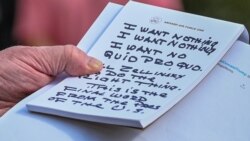 I WANT NOTHING.
I WANT NOTHING.
I WANT NO
QUID PRO QUO.
TELL ZELLINSKY
TO DO THE
RIGHT THING.
THIS IS THE
FINAL WORD
FROM THE PRES
OF THE U.S.